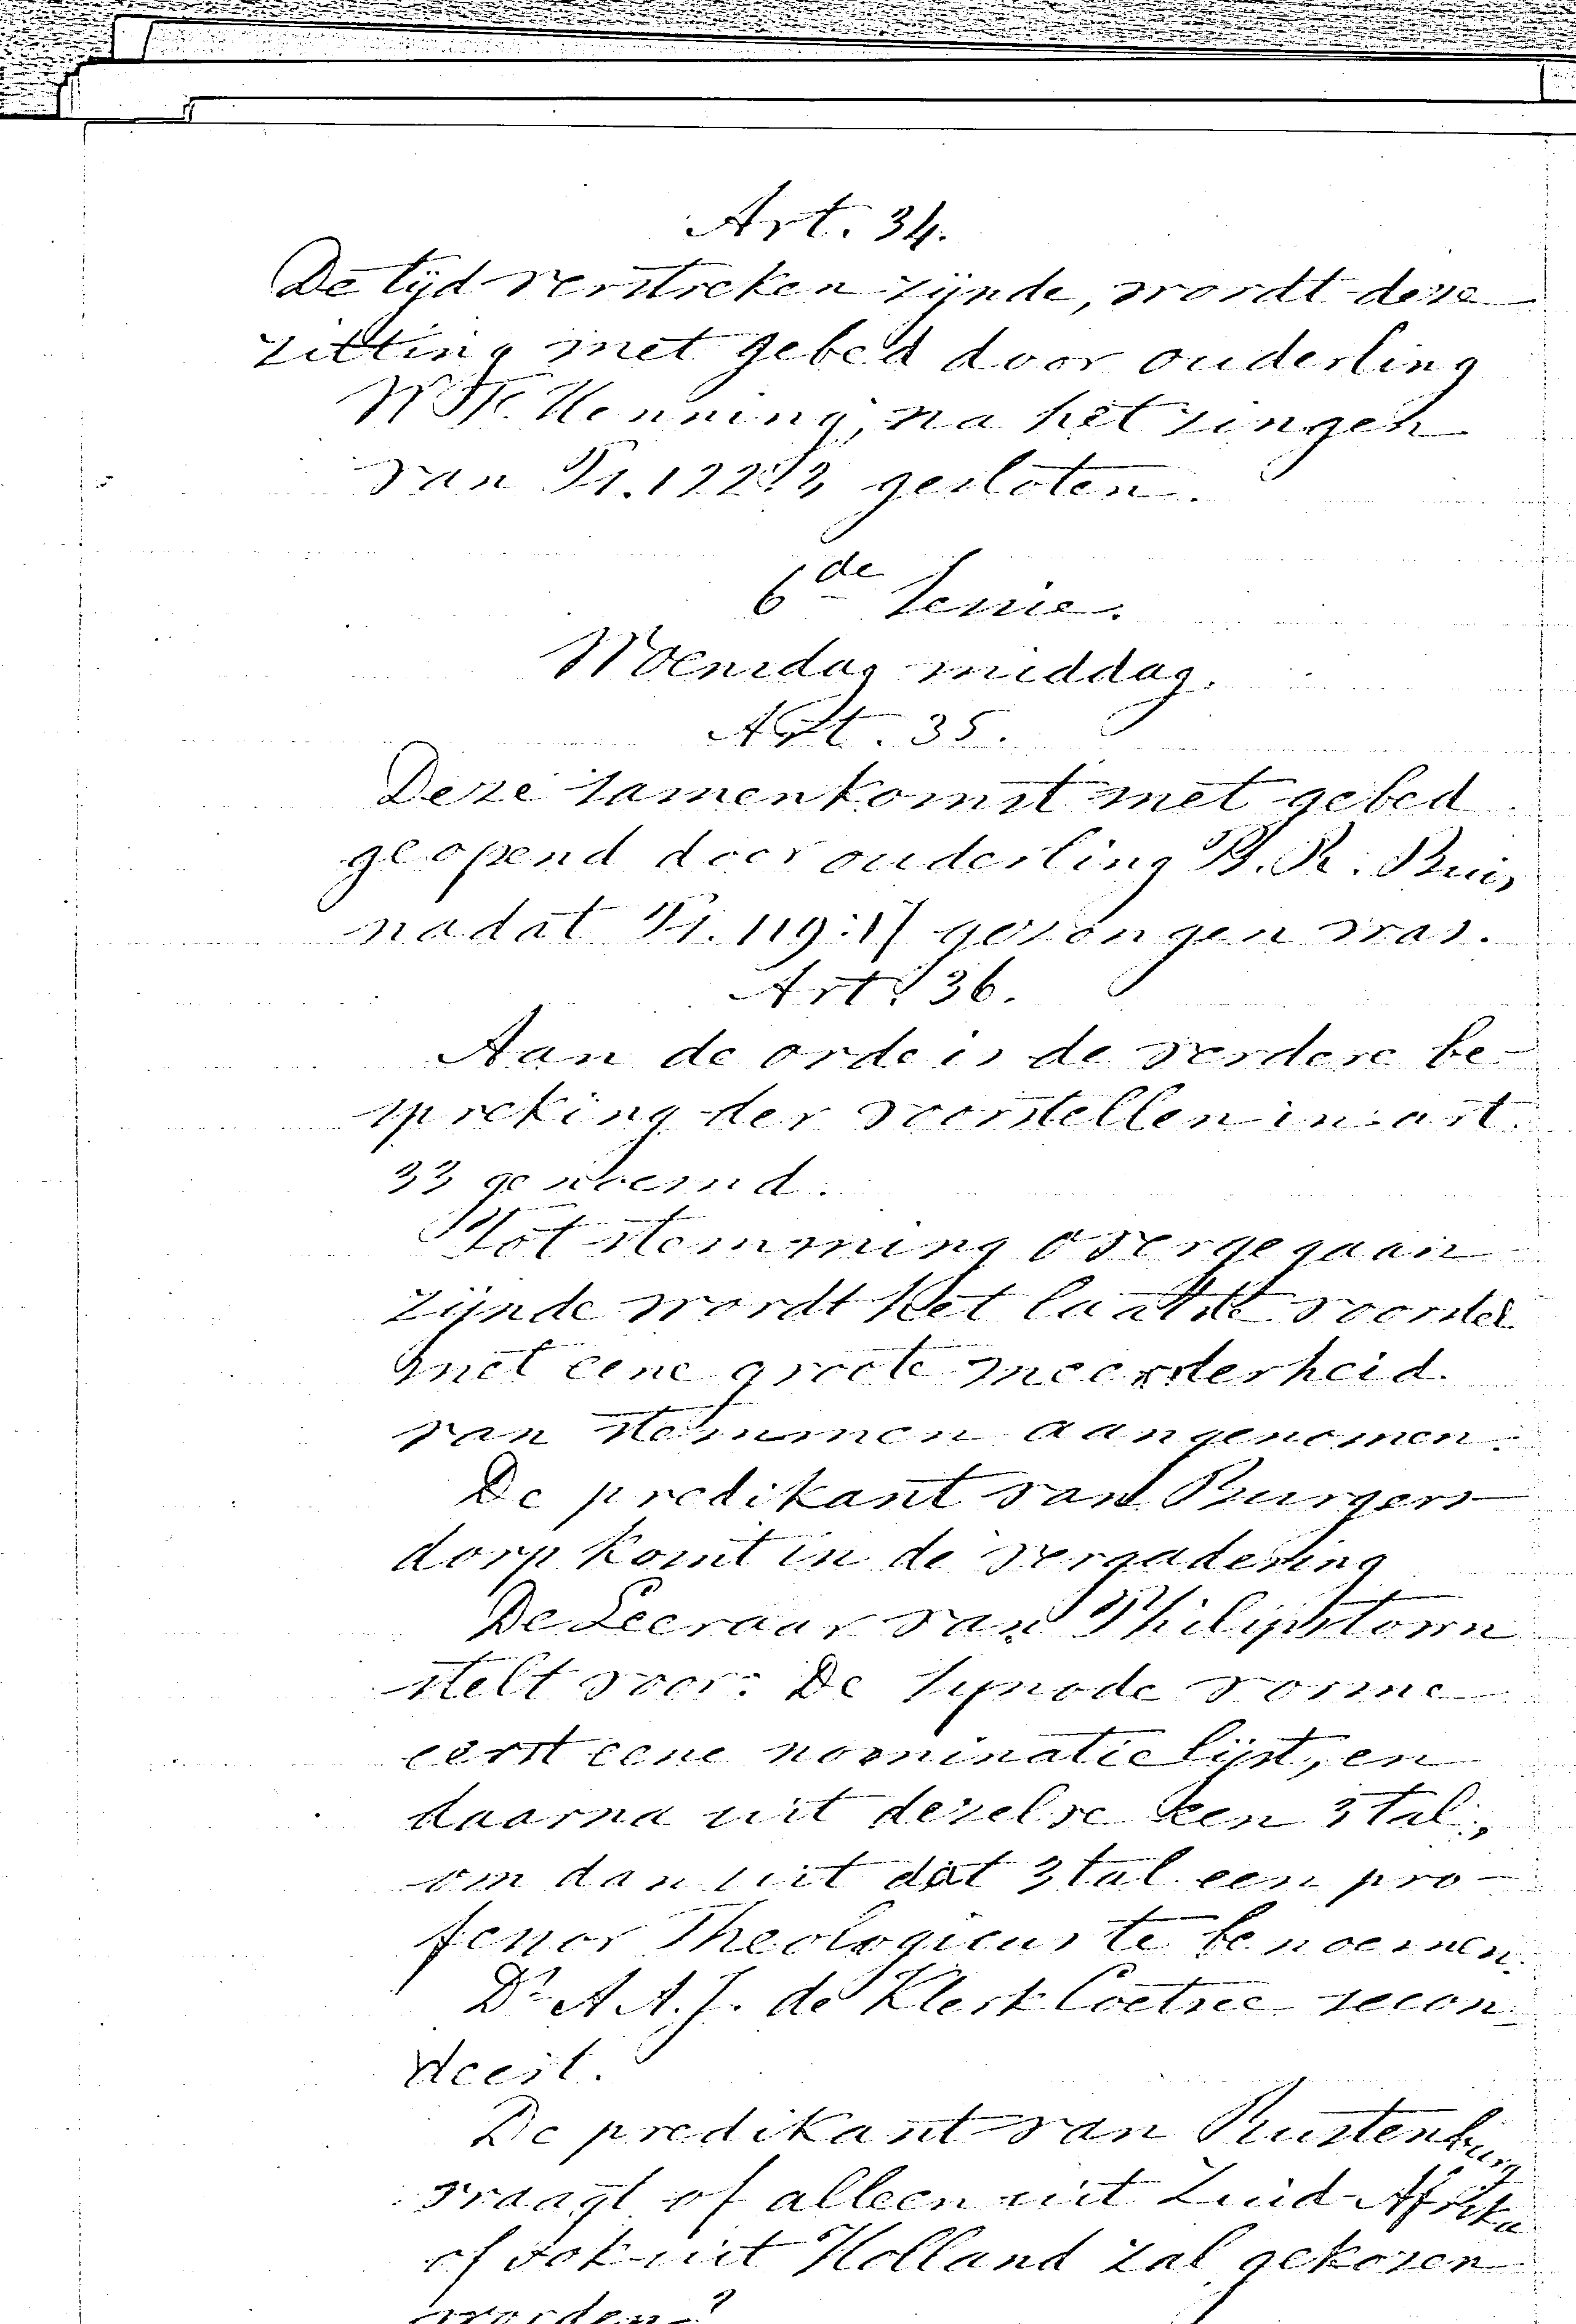 Art. 34.
De tijd verstreken zijnde, wordt deze
zitting met gebed door ouderling
Henning, na het zingen
van Ps. 122:3 gesloten.
6de Sessie.
Woensdag middag.
Art. 35.
Deze samenkomst met gebed
geopend door ouderling Buis,
nadat Ps. 119:17 gezongen was.
Art. 36.
Aan de orde is de verdere be-
spreking der voorstellen in art.
33 genoemd.
Tot stemming overgegaan
zijnde wordt het laatste voorstel
met eene groote meerderheid
van stemmen aangenomen.
De predikant van Burgers-
dorp komt in de vergadering
De Leeraar van Philipstown
stelt voor: De Synode vorme
eerst eene nominatielijst, en
daarna uit dezelve een 3tal,
om dan uit dat 3tal een pro-
fessor Theologicus te benoemen.
Ds A. A. J. de Klerk Coetzee secon-
deert.
De predikant van Rustenburg
vraagt of alleen uit Zuid-Afrika
of ook uit Holland zal gekozen
worden?